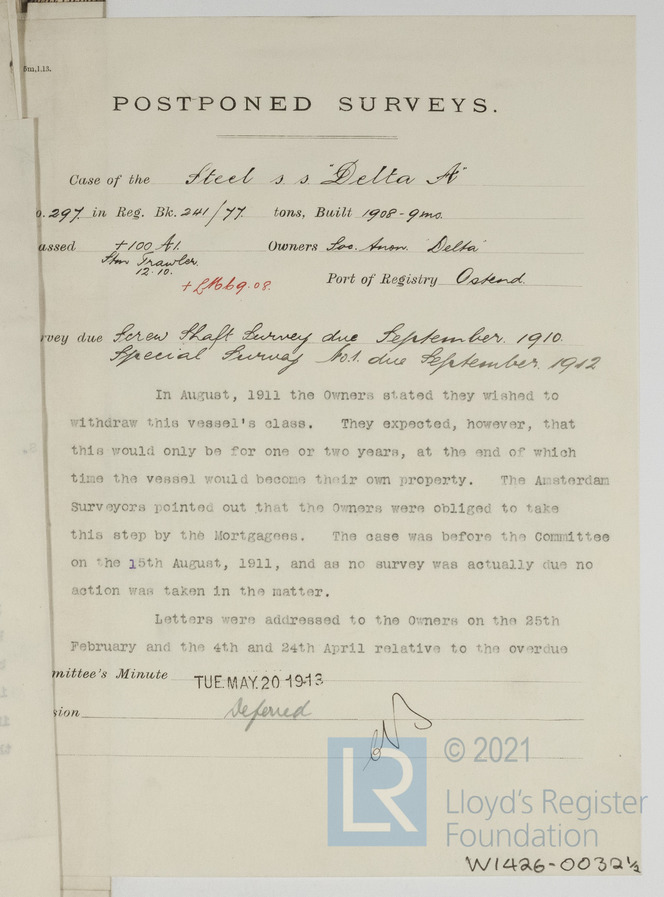 5m,1.13.
POSTPONED SURVEYS.
Case of the Steel s.s. "Delta A"
o. 297 in Reg. Bk. 241/77 tons, Built 1908-9mo.
assed +100 A1. Owners Soc. Anon. "Delta"
Stm Trawler.
12.10.
+LMC 9.08.
Port of Registry Ostend.
rvey due Screw Shaft Survey due September. 1910.
Special Survey No.1. due September. 1912
In August, 1911 the Owners stated they wished to
withdraw this vessel's class. They expected, however, that
this would only be for one or two years, at the end of which
time the vessel would become their own property. The Amsterdam
Surveyors pointed out that the Owners were obliged to take
this step by the Mortgagees. The case was before the Committee
on the 15th August, 1911, and as no survey was actually due no
action was taken in the matter.
Letters were addressed to the Owners on the 25th
February and the 4th and 24th April relative to the overdue
mittee's Minute TUE.MAY.20 1913
sion Deferred
© 2021
LR
Lloyd's Register
Foundation
W1426-0032½